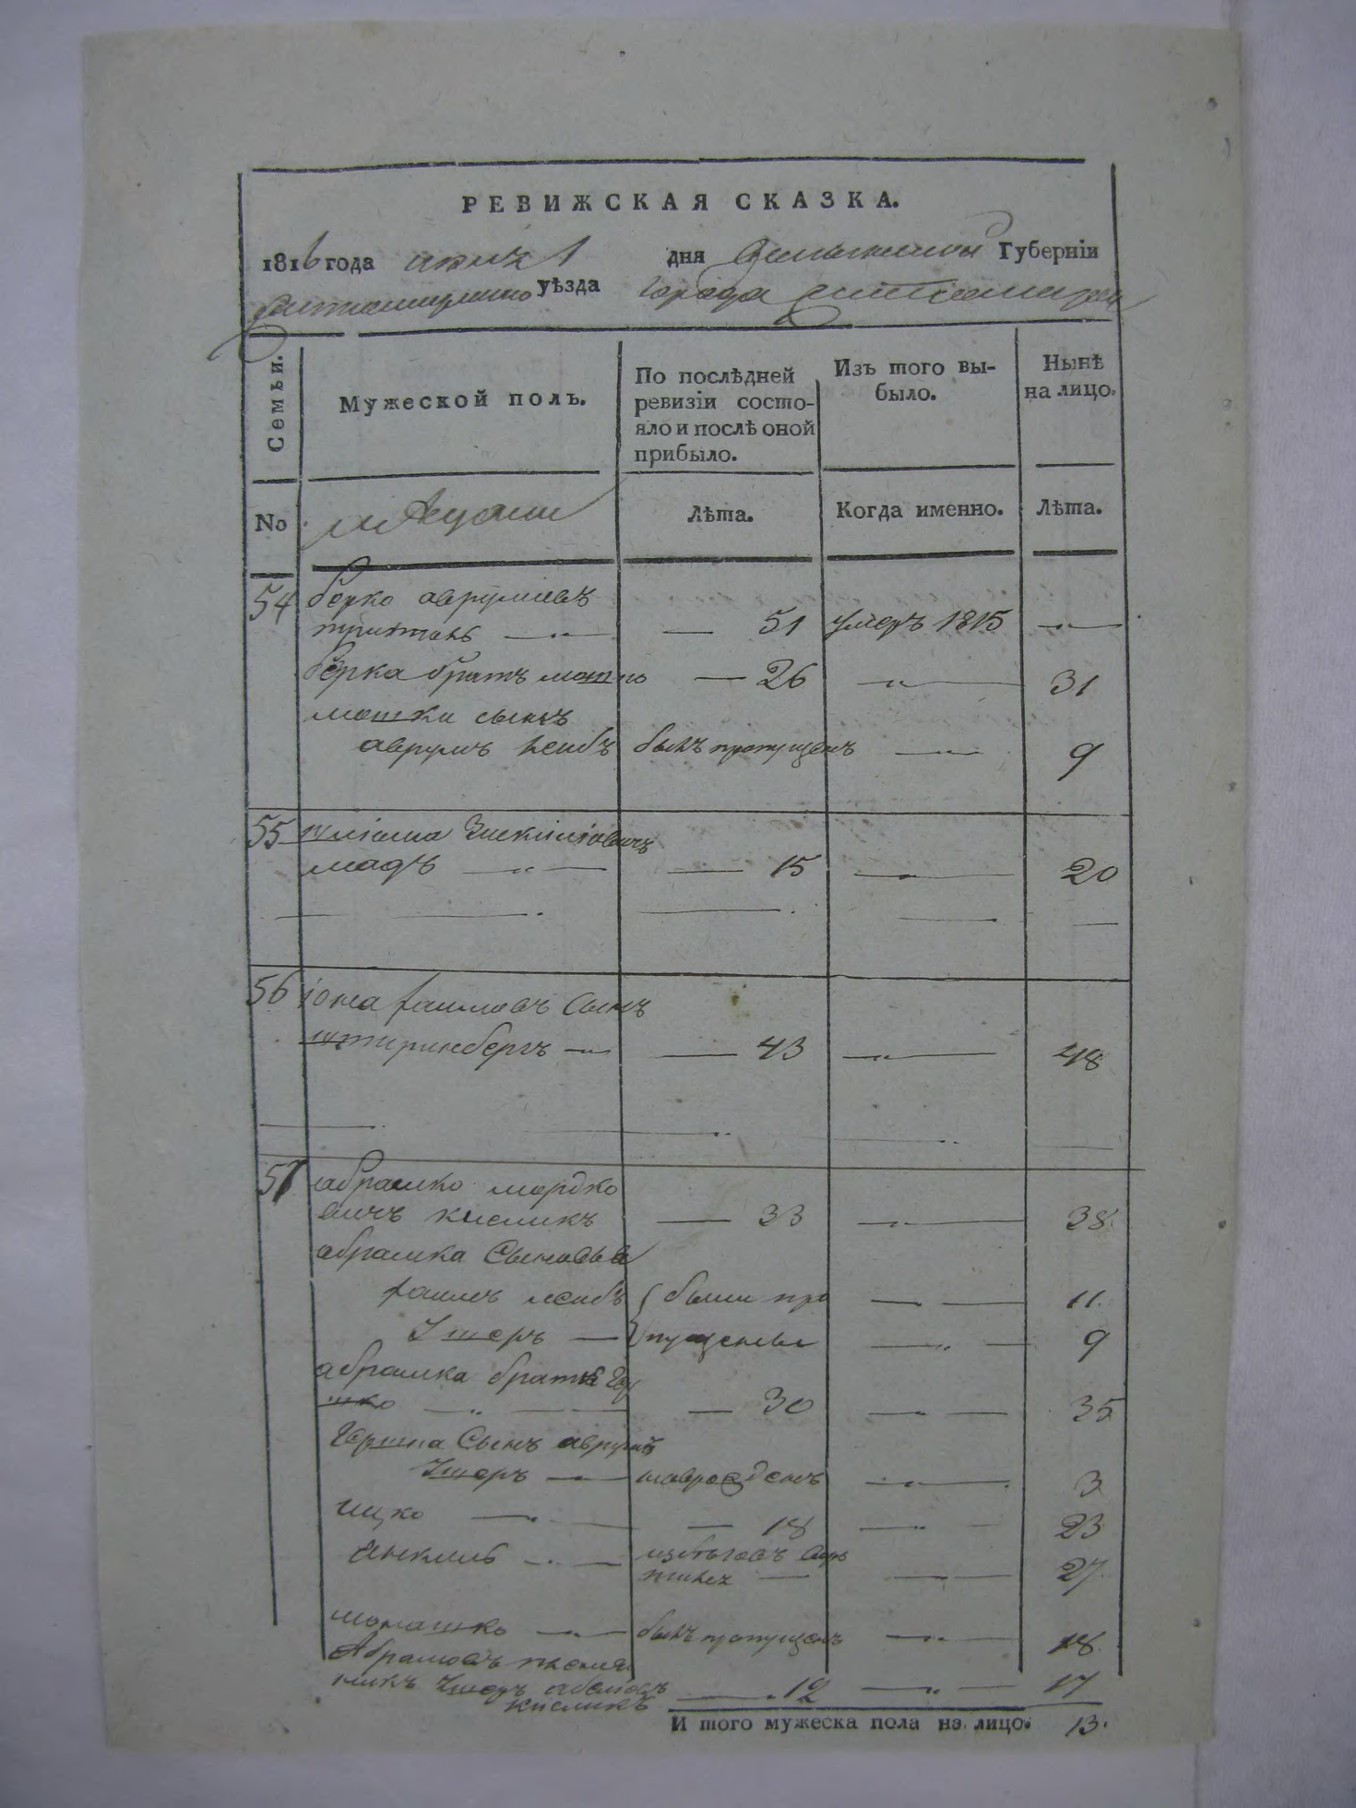 РЕВИЖСКАЯ СКАЗКА.
1816 года июня 1 дня Волынской Губерніи
Житомирского уѣзда города Житомира
Семьи. Мужеской полъ. По послѣдней ревизіи состояло и послѣ оной прибыло. Изъ того выбыло. Нынѣ на лицо.
No Лѣта. Когда именно. Лѣта.
54 берко аврумовъ
51 умеръ 1815
берка братъ мошко — 26 31
мошки сынъ
аврумъ леибъ былъ пропущенъ 9
55
15 20
56 іона фаилевъ сынъ
штеринбергъ — 43 48
57 абрамко мордко
вичъ кисликъ — 33 38.
абрамка сыновья
фаилъ леибъ были про 11.
Ушеръ — пущены 9
абрамка братъ Гер
шко — 30 35
Гершка сынъ аврумъ
Ушеръ — новрожденъ 3
ицко — 18 23
Янкель — 27
мошко — былъ пропущенъ 18.
Абрамовъ племя
никъ Ушеръ
кисликъ — 12 17
И того мужеска пола на лицо. 13.